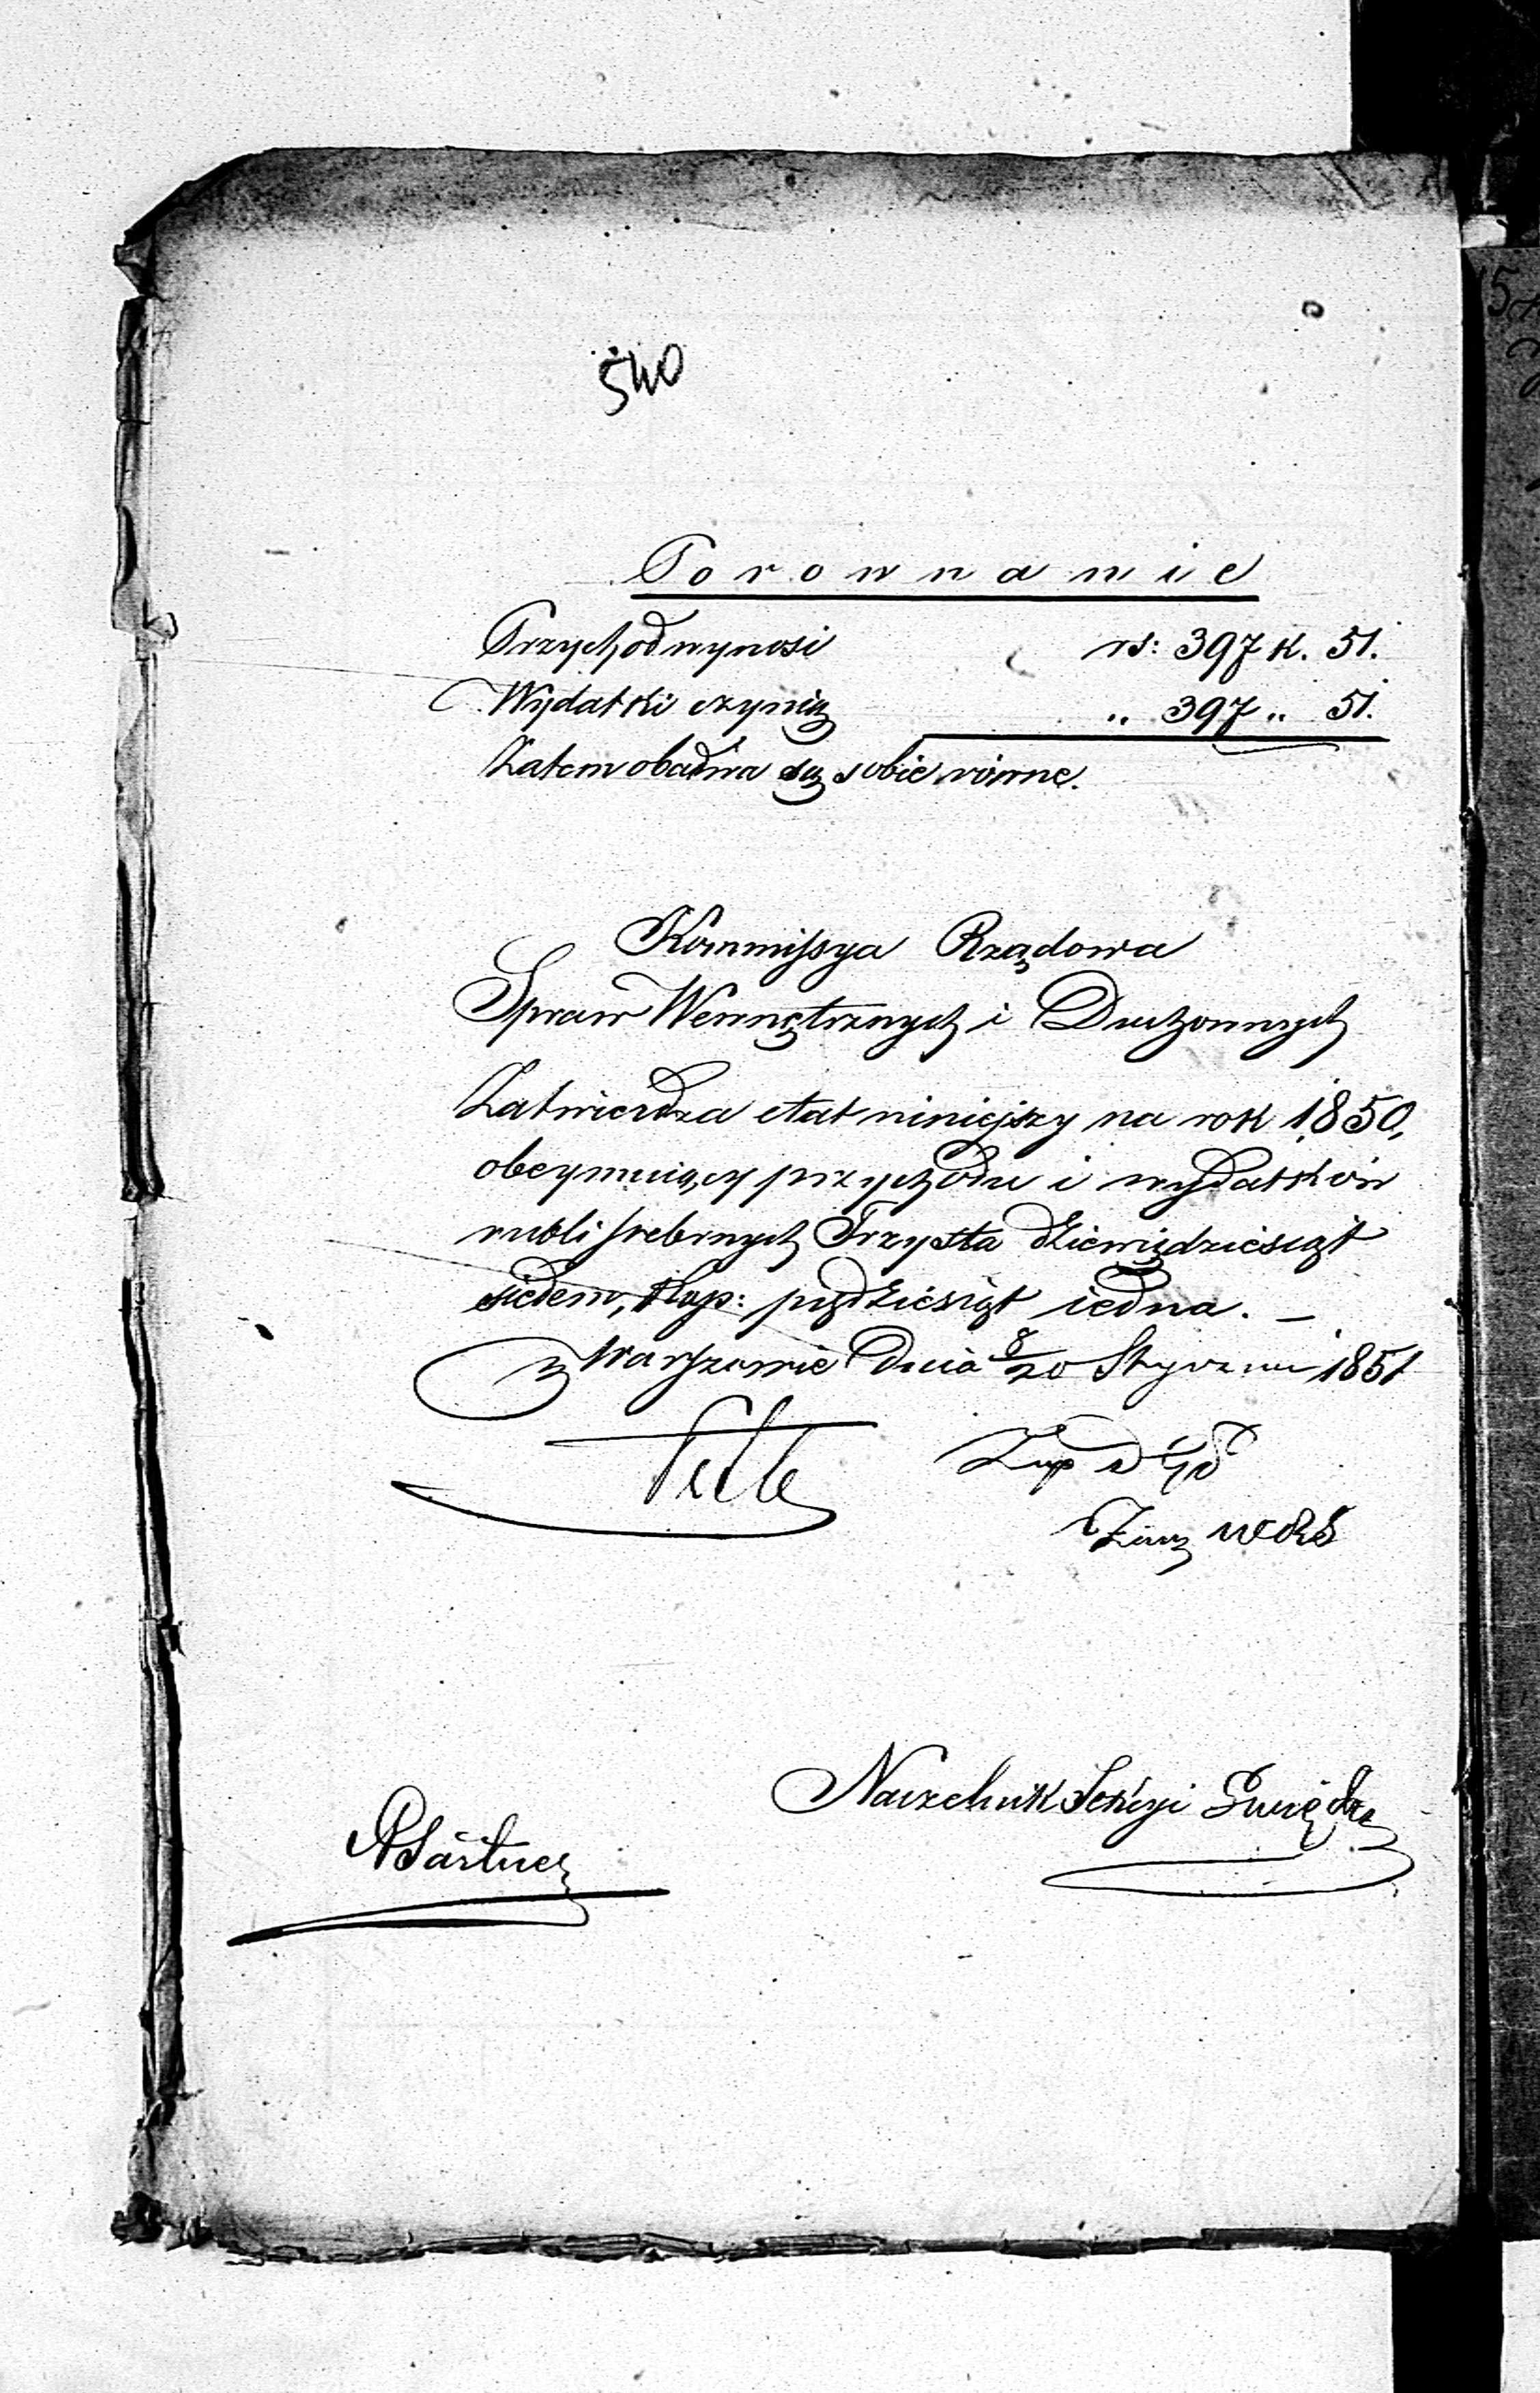 540
Porownanie
Przychod wynosi rs: 397 k. 51.
Wydatki czynią „ 397 „ 51.
Zatem obadwa są sobie równe.
Kommissya Rządowa
Spraw Wewnętrznych i Duchownych
Zatwierdza etat niniejszy na rok 1850,
obeymuiący przychodu i wydatków
rubli srebrnych Trzysta dziewiędziesiąt
siedem, kop: piędziesiąt iedna. —
w Warszawie dnia 8/20 Stycznia 1851
Naczelnik Sekcyi